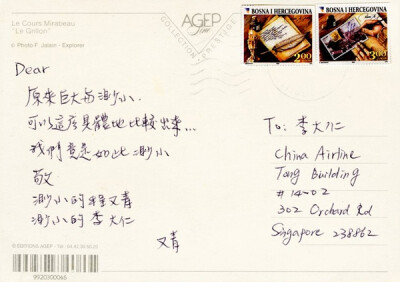 Le Cours Mirabeau
"Le Grillon"
© Photo F. Jalain - Explorer
AGEP
COLLECTION PRESTIGE
BOSNA I HERCEGOVINA
2.00
BOSNA I HERCEGOVINA
Dear
原來巨大與渺小.
可以這麼具體地比較出來...
我們竟是如此渺小
敬
渺小的程又青
渺小的李大仁
又青
To: 李大仁
China Airline
Tong Building
#14-02
302 Orchard Rd
Singapore 238862
© EDITIONS AGEP
9920X00046